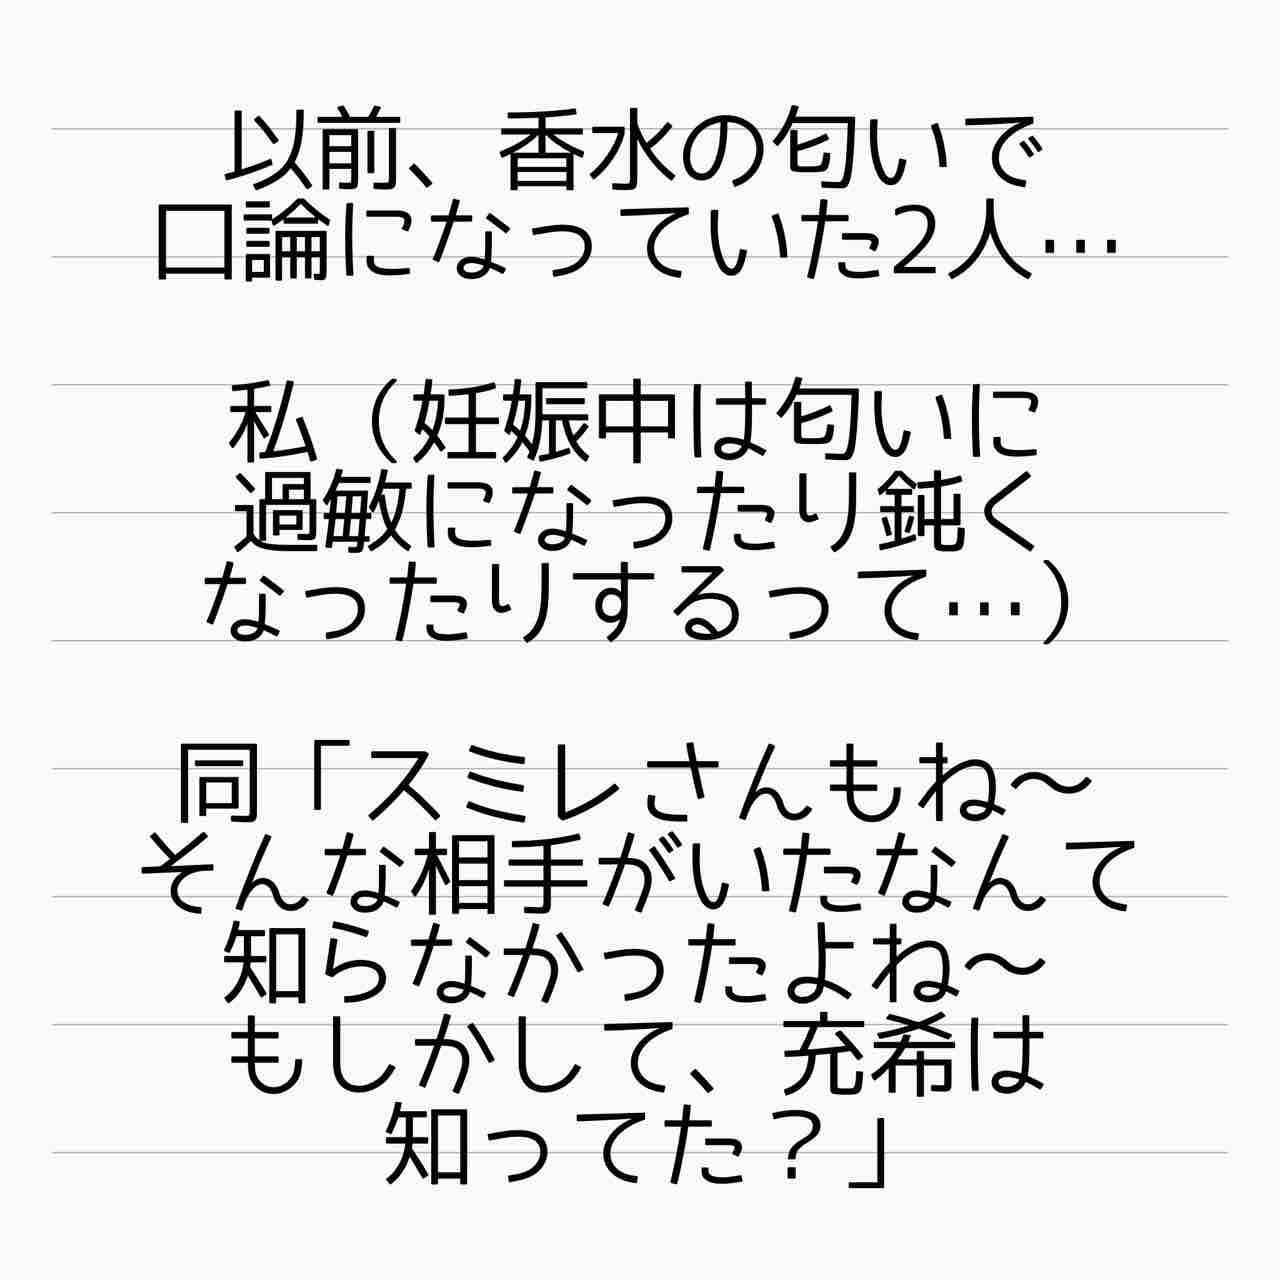 以前、香水の匂いで
口論になっていた2人…
私（妊娠中は匂いに
過敏になったり鈍く
なったりするって…）
同「スミレさんもね〜
そんな相手がいたなんて
知らなかったよね〜
もしかして、充希は
知ってた？」